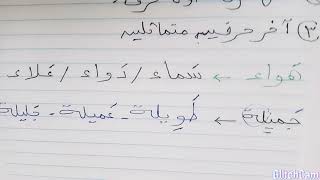 ③ آخر حرفين متماثلين
هواء ← سَماء / دَواء / غلاء
جَميلة ← طَوِيلة - عَميلة - جَليلة
GlitchCam